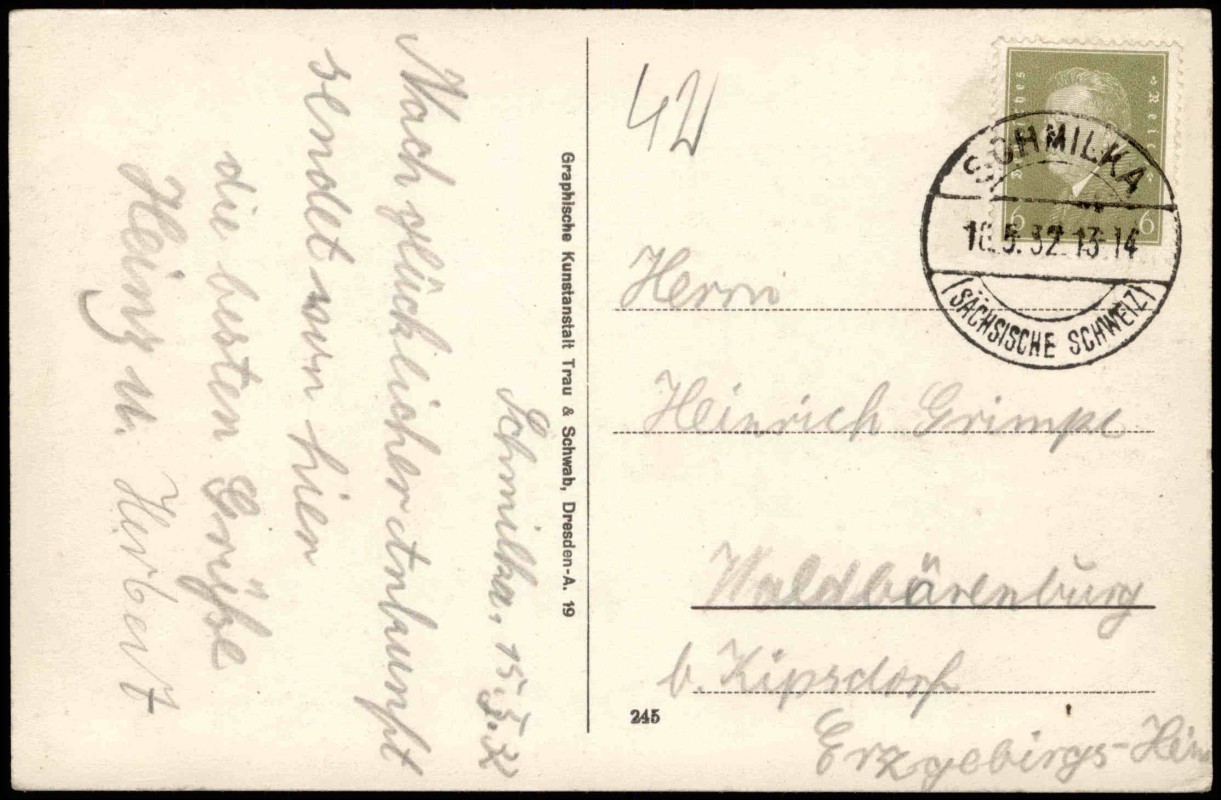 Schmilka, 15.5.32
Nach glücklicher Ankunft
sendet von hier
die besten Grüße
Heinz u. Herbert
Graphische Kunstanstalt Trau & Schwab, Dresden-A. 19
42
Deutsches Reich
6 6
SCHMILKA
16.5.32.13-14
(SÄCHSISCHE SCHWEIZ)
Herrn
Heinrich Grimpe
Waldbärenburg
b. Kipsdorf
Erzgebirgs-Heim
245